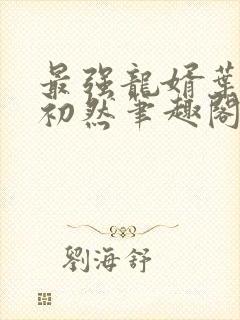 最强龍婿葉
初然筆趣閣
劉海舒